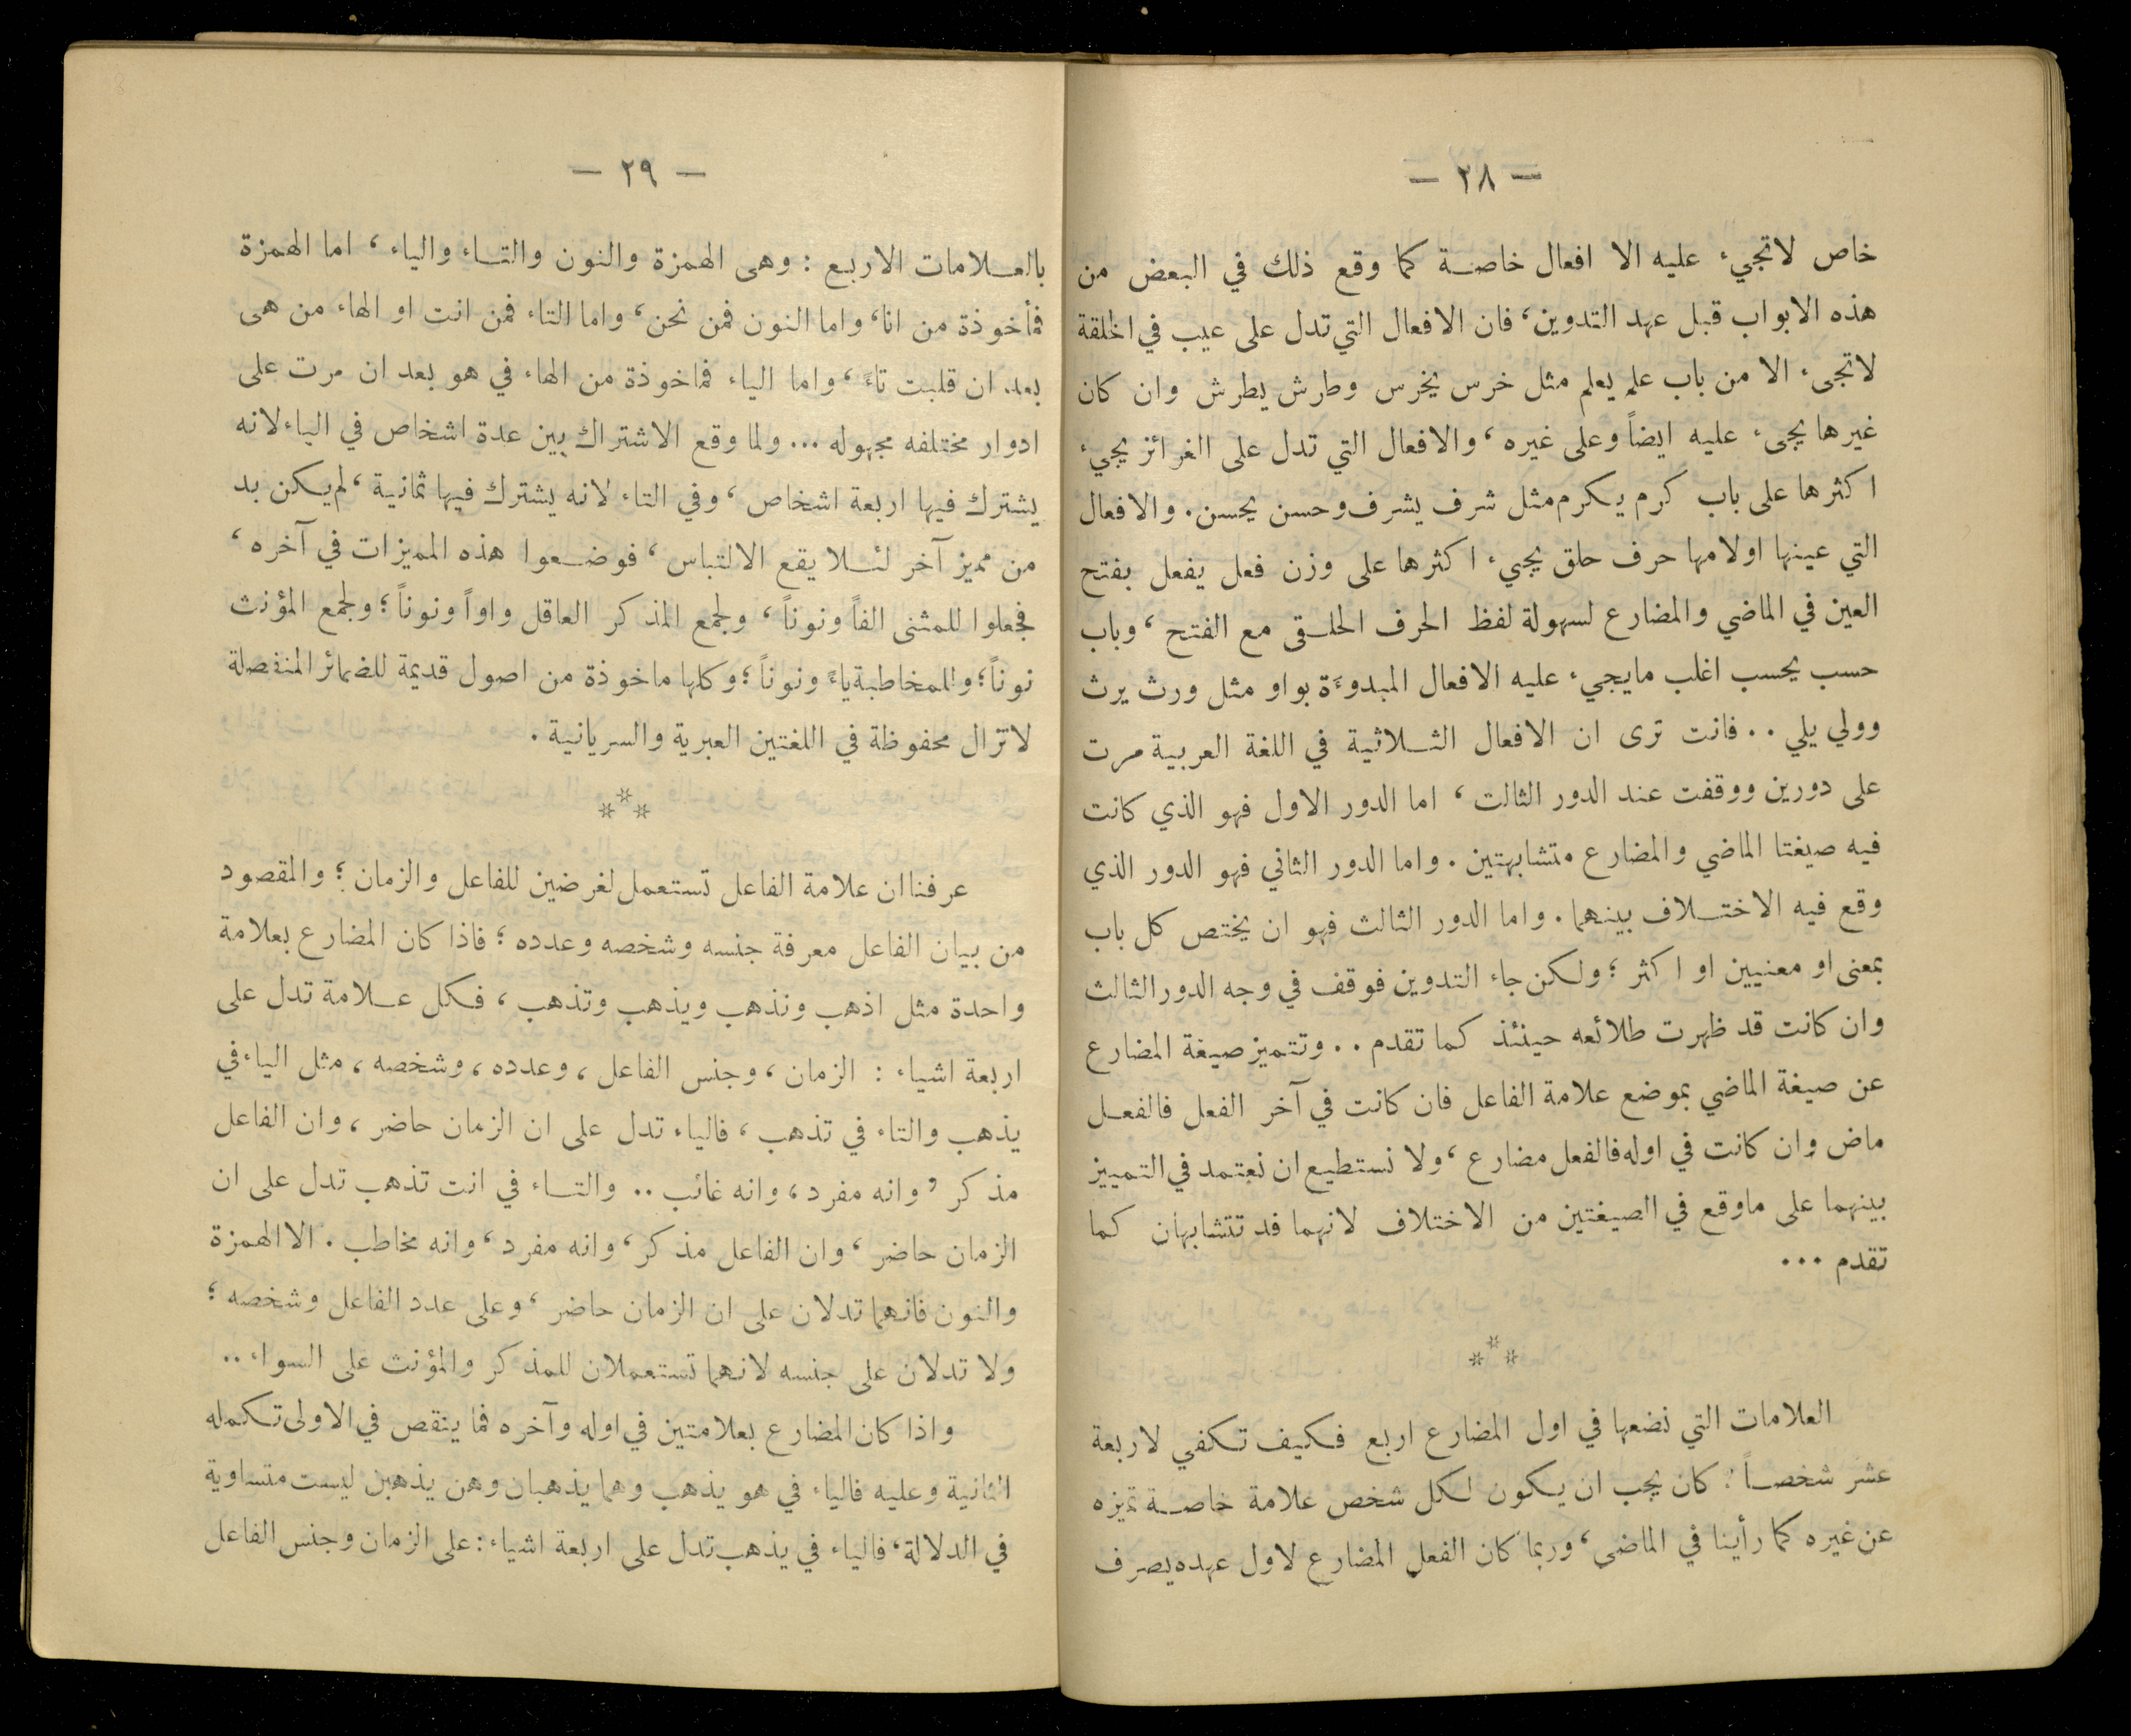 — ٢٨ —
خاص لاتجيء عليه الا افعال خاصة كما وقع ذلك في البعض من
هذه الابواب قبل عهد التدوين، فان الافعال التي تدل على عيب في الخلقة
لاتجىء الا من باب علم يعلم مثل خرس يخرس وطرش يطرش وان كان
غيرها يجىء عليه ايضاً وعلى غيره، والافعال التي تدل على الغرائز يجيء
اكثرها على باب كرم يكرم مثل شرف يشرف وحسن يحسن. والافعال
التي عينها اولامها حرف حلق يجيء اكثرها على وزن فعل يفعل بفتح
العين في الماضي والمضارع لسهولة لفظ الحرف الحلقى مع الفتح، وباب
حسب يحسب اغلب مايجيء عليه الافعال المبدوءة بواو مثل ورث يرث
وولي يلي .. فانت ترى ان الافعال الثلاثية في اللغة العربية مرت
على دورين ووقفت عند الدور الثالث، اما الدور الاول فهو الذي كانت
فيه صيغتا الماضي والمضارع متشابهتين. واما الدور الثاني فهو الدور الذي
وقع فيه الاختلاف بينهما. واما الدور الثالث فهو ان يختص كل باب
بمعنى او معنيين او اكثر؛ ولكن جاء التدوين فوقف في وجه الدور الثالث
وان كانت قد ظهرت طلائعه حينئذ كما تقدم .. وتتميز صيغة المضارع
عن صيغة الماضي بموضع علامة الفاعل فان كانت في آخر الفعل فالفعل
ماض وان كانت في اوله فالفعل مضارع، ولا نستطيع ان نعتمد في التمييز
بينهما على ماوقع في الصيغتين من الاختلاف لانهما قد تتشابهان كما
تقدم ...
***
العلامات التي نضعها في اول المضارع اربع فكيف تكفي لاربعة
عشر شخصاً؛ كان يجب ان يكون لكل شخص علامة خاصة تميزه
عن غيره كما رأينا في الماضى، وربما كان الفعل المضارع لاول عهده يصرف
— ٢٩ —
بالعلامات الاربع : وهى الهمزة والنون والتاء والياء، اما الهمزة
فمأخوذة من انا، واما النون فمن نحن، واما التاء فمن انت او الهاء من هى
بعد ان قلبت تاءً، واما الياء فماخوذة من الهاء في هو بعد ان مرت على
ادوار مختلفه مجهوله ... ولما وقع الاشتراك بين عدة اشخاص في الياء لانه
يشترك فيها اربعة اشخاص، وفي التاء لانه يشترك فيها ثمانية، لم يكن بد
من مميز آخر لئلا يقع الالتباس، فوضعوا هذه المميزات في آخره،
فجعلوا للمثنى الفاً ونوناً، ولجمع المذكر العاقل واواً ونوناً؛ ولجمع المؤنث
نوناً؛ وللمخاطبة ياءً ونوناً؛ وكلها ماخوذة من اصول قديمة للضمائر المنفصلة
لاتزال محفوظة في اللغتين العبرية والسريانية .
***
عرفنا ان علامة الفاعل تستعمل لغرضين للفاعل والزمان؛ والمقصود
من بيان الفاعل معرفة جنسه وشخصه وعدده؛ فاذا كان المضارع بعلامة
واحدة مثل اذهب ونذهب ويذهب وتذهب، فكل علامة تدل على
اربعة اشياء : الزمان، وجنس الفاعل، وعدده، وشخصه، مثل الياء في
يذهب والتاء في تذهب، فالياء تدل على ان الزمان حاضر، وان الفاعل
مذكر، وانه مفرد، وانه غائب .. والتاء في انت تذهب تدل على ان
الزمان حاضر، وان الفاعل مذكر، وانه مفرد، وانه مخاطب. الا الهمزة
والنون فانهما تدلان على ان الزمان حاضر، وعلى عدد الفاعل وشخصه؛
ولا تدلان على جنسه لانهما تستعملان للمذكر والمؤنث على السواء ..
واذا كان المضارع بعلامتين في اوله وآخره فما ينقص في الاولى تكمله
الثانية وعليه فالياء في هو يذهب وهما يذهبان وهن يذهبن ليست متساوية
في الدلالة، فالياء في يذهب تدل على اربعة اشياء : على الزمان وجنس الفاعل